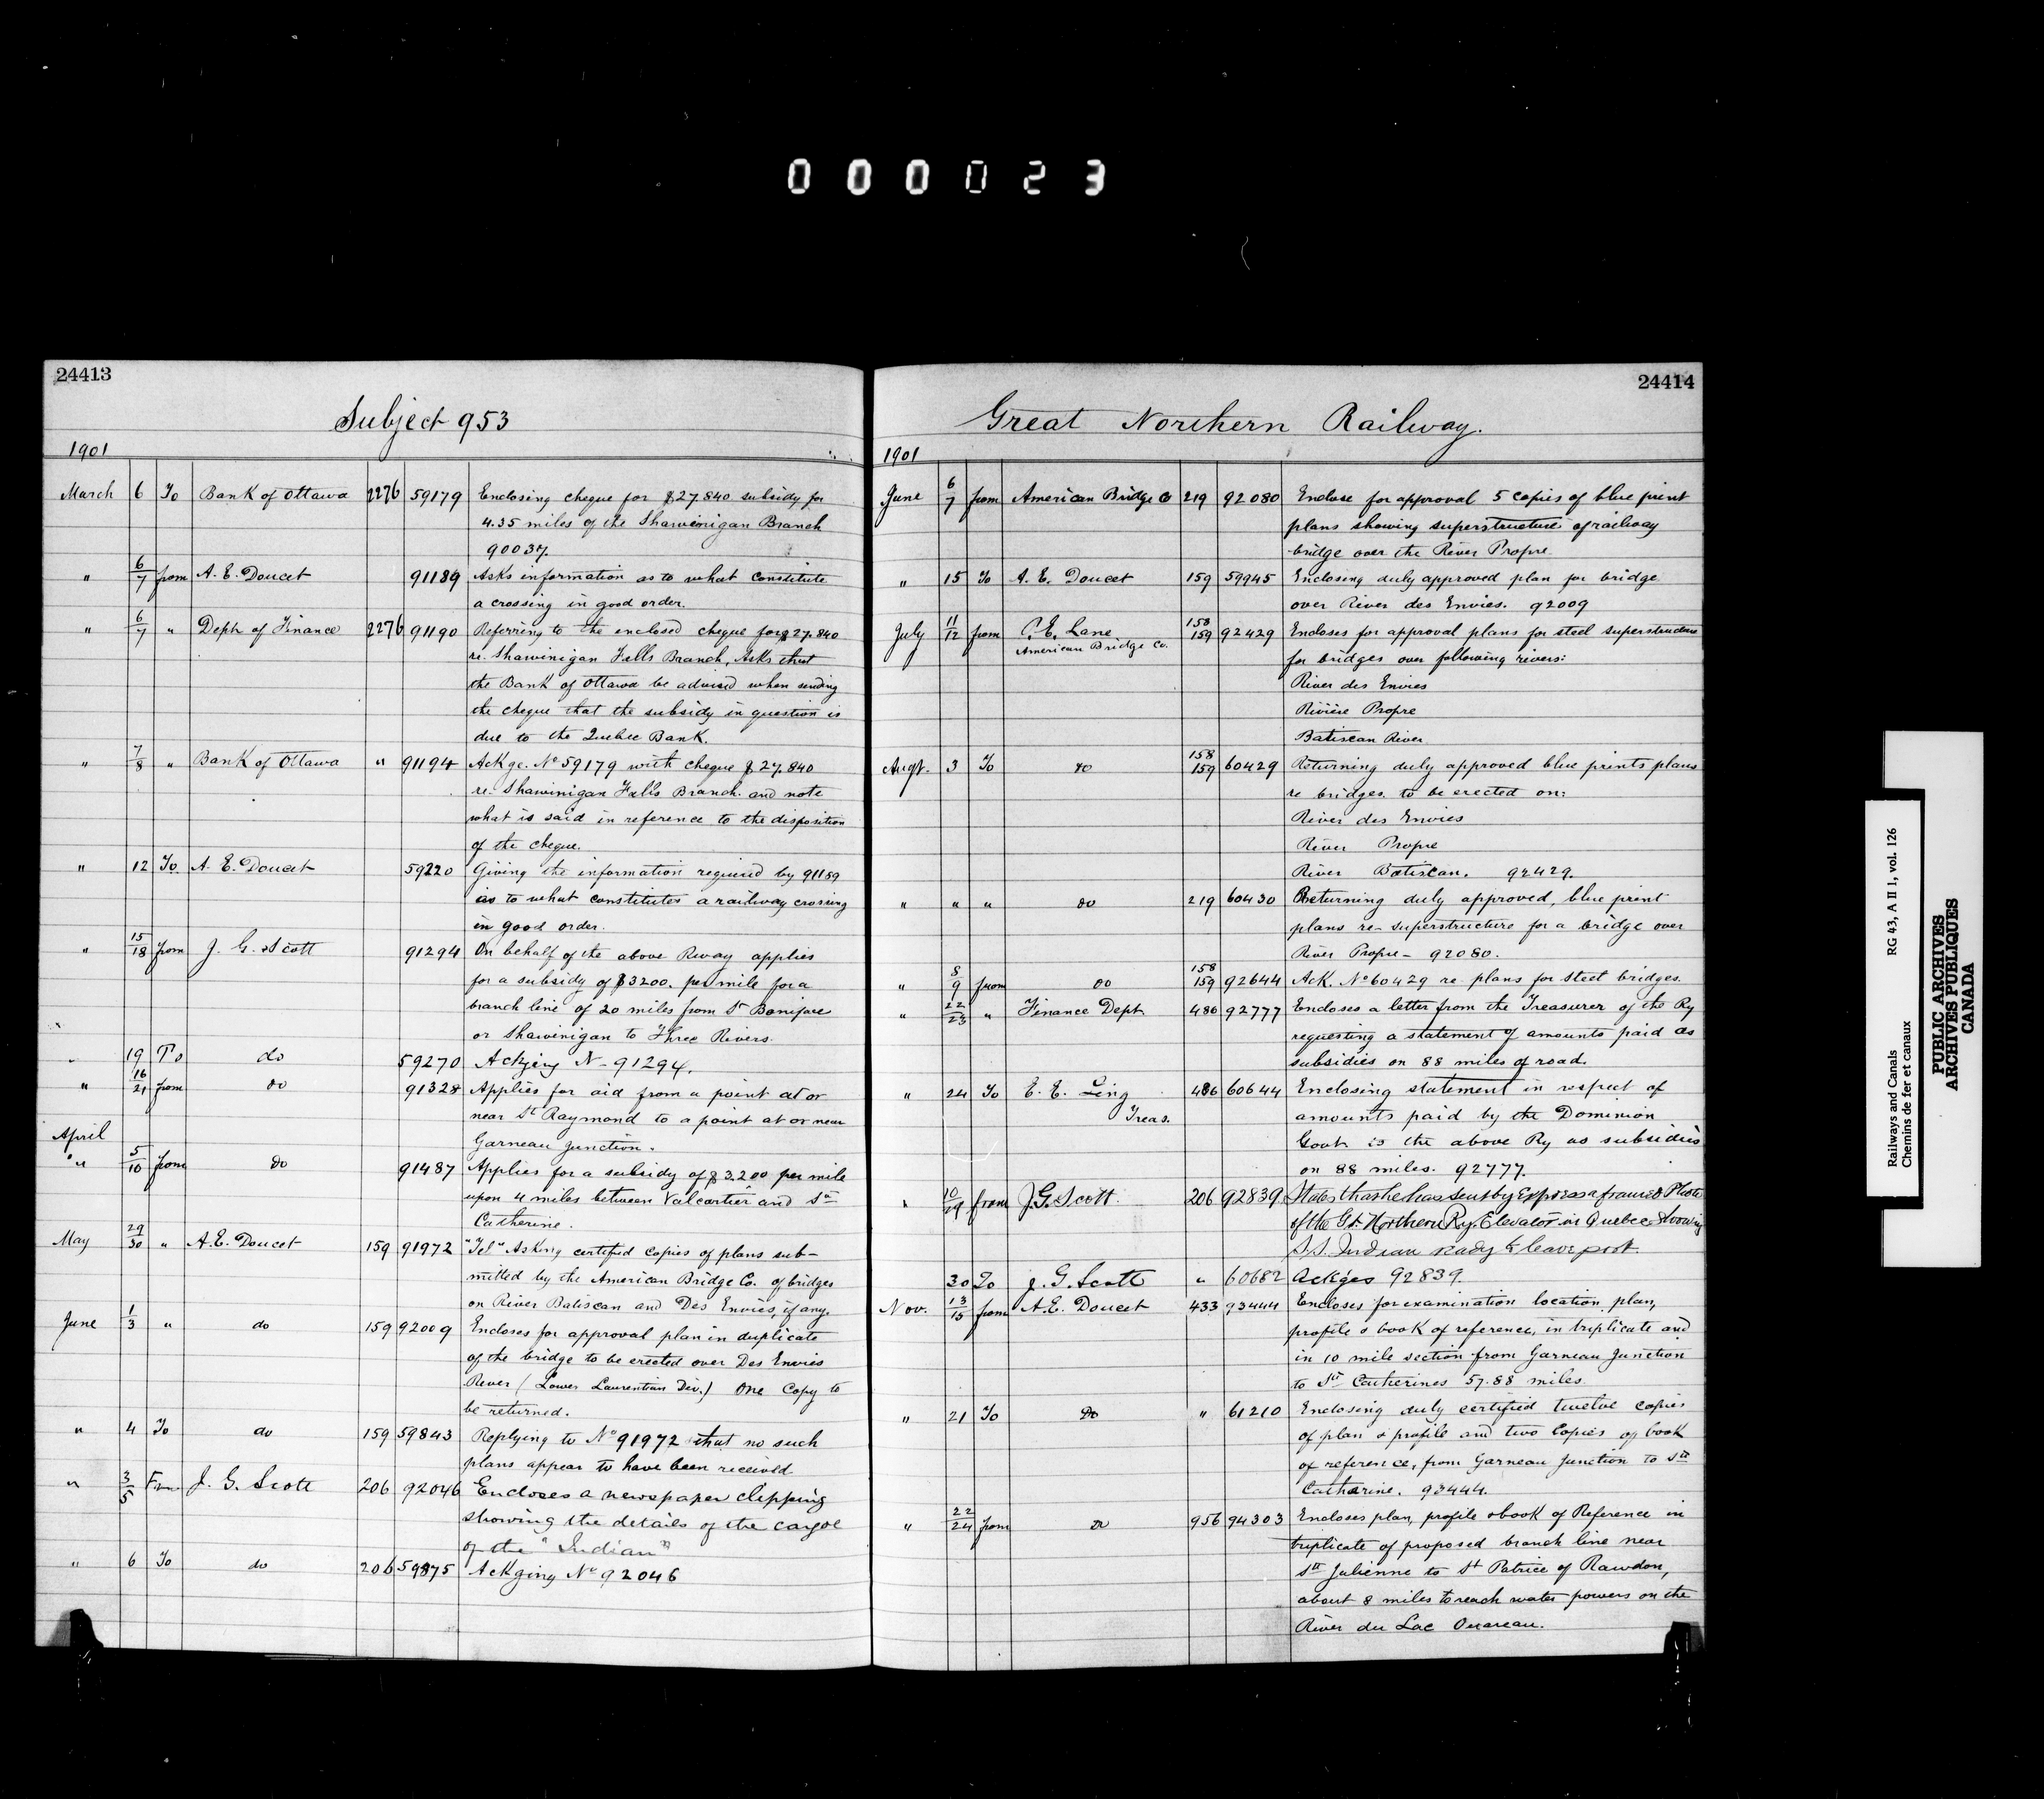 000023
24413
Subject 953
1901
March 6 To Bank of Ottawa 2276 59179 Enclosing cheque for $27.840 subsidy for
4.35 miles of the Shawinigan Branch
90037.
" 6/7 from A. E. Doucet 91189 Asks information as to what constitute
a crossing in good order.
" 6/7 " Deph of Finance 2276 91190 Referring to the enclosed cheque for $27.840
re. Shawinigan Falls Branch, Asks that
the Bank of Ottawa be advised when sending
the cheque that the subsidy in question is
due to the Quebec Bank.
" 7/8 " Bank of Ottawa " 91194 Ackge. No 59179 with cheque $27.840
re. Shawinigan Falls Branch. and note
what is said in reference to the disposition
of the cheque.
" 12 To A. E. Doucet 59220 Giving the information required by 91189
as to what constitutes a railway crossing
in good order.
" 15/18 from J. G. Scott 91294 On behalf of the above Rway applies
for a subsidy of $3200. per mile for a
branch line of 20 miles from St Boniface
or Shawinigan to Three Rivers.
" 19 To do 59270 Ackging N- 91294.
" 16/21 from do 91328 Applies for aid from a point at or
near St Raymond to a point at or near
Garneau Junction.
April
" 5/10 from do 91487 Applies for a subsidy of $3.200 per mile
upon 4 miles between Valcartier and Ste
Catherine.
May 29/30 " A.E. Doucet 159 91972 "Tel" Asking certified copies of plans sub-
mitted by the American Bridge Co. of bridges
on River Batiscan and Des Envies, if any.
June 1/3 " do 159 92009 Encloses for approval plan in duplicate
of the bridge to be erected over Des Envies
River (Lower Laurentian Div.) One Copy to
be returned.
" 4 To do 159 59843 Replying to No 91972 that no such
plans appear to have been received
" 3/5 From J. G. Scott 206 92046 Encloses a newspaper clipping
showing the details of the cargoe
of the "Indian"
" 6 To do 206 59875 Ackging No 92046
24414
Great Northern Railway.
1901
June 6/7 from American Bridge Co 219 92080 Enclose for approval 5 copies of blue print
plans showing superstructure of railway
bridge over the River Propre
" 15 To A. E. Doucet 159 59945 Enclosing duly approved plan for bridge
over River des Envies. 92009
July 11/12 from C. E. Lane 158 159 92429 Encloses for approval plans for steel superstructure
American Bridge Co.
for bridges over following rivers:
River des Envies
Rivière Propre
Batiscan River
Augt. 3 To do 158 159 60429 Returning duly approved blue prints plans
re bridges. to be erected on:
River des Envies
River Propre
River Batiscan. 92429.
" " " do 219 60430 Returning duly approved, blue print
plans re- superstructure for a bridge over
River Propre - 92080.
" 8/9 from do 158 159 92644 Ack. No 60429 re. plans for steel bridges.
" 22/23 " Finance Dept 486 92777 Encloses a letter from the Treasurer of the Ry
requesting a statement of amounts paid as
subsidies on 88 miles of road.
" 24 To E. E. Ling 486 60644 Enclosing statement in respect of
Treas.
amounts paid by the Dominion
Govt. to the above Ry as subsidies
on 88 miles. 92777.
" 10/29 from J.G. Scott. 206 92839 States that he has sent by Express a framed Photo
of the Gt. Northern Ry. Elevator in Quebec showing
S.S. Indian ready to leave port.
30 To J. G. Scott " 60682 Ackges 92839.
Nov. 13/15 from A.E. Doucet 433 93444 Encloses for examination location plan,
profile & book of reference, in triplicate and
in 10 mile section from Garneau Junction
to Ste Catherines 57.88 miles.
" 21 To Do " 61210 Enclosing duly certified twelve copies
of plan & profile and two Copies of book
of reference, from Garneau Junction to Ste
Catharine. 93444.
" 22/24 from do 956 94303 Encloses plan, profile & book of Reference in
triplicate of proposed branch line near
Ste Julienne to St Patrice of Rawdon,
about 8 miles to reach water powers on the
River du Lac Ouareau.
Railways and Canals RG 43, A II 1, vol. 126
Chemins de fer et canaux
PUBLIC ARCHIVES
ARCHIVES PUBLIQUES
CANADA